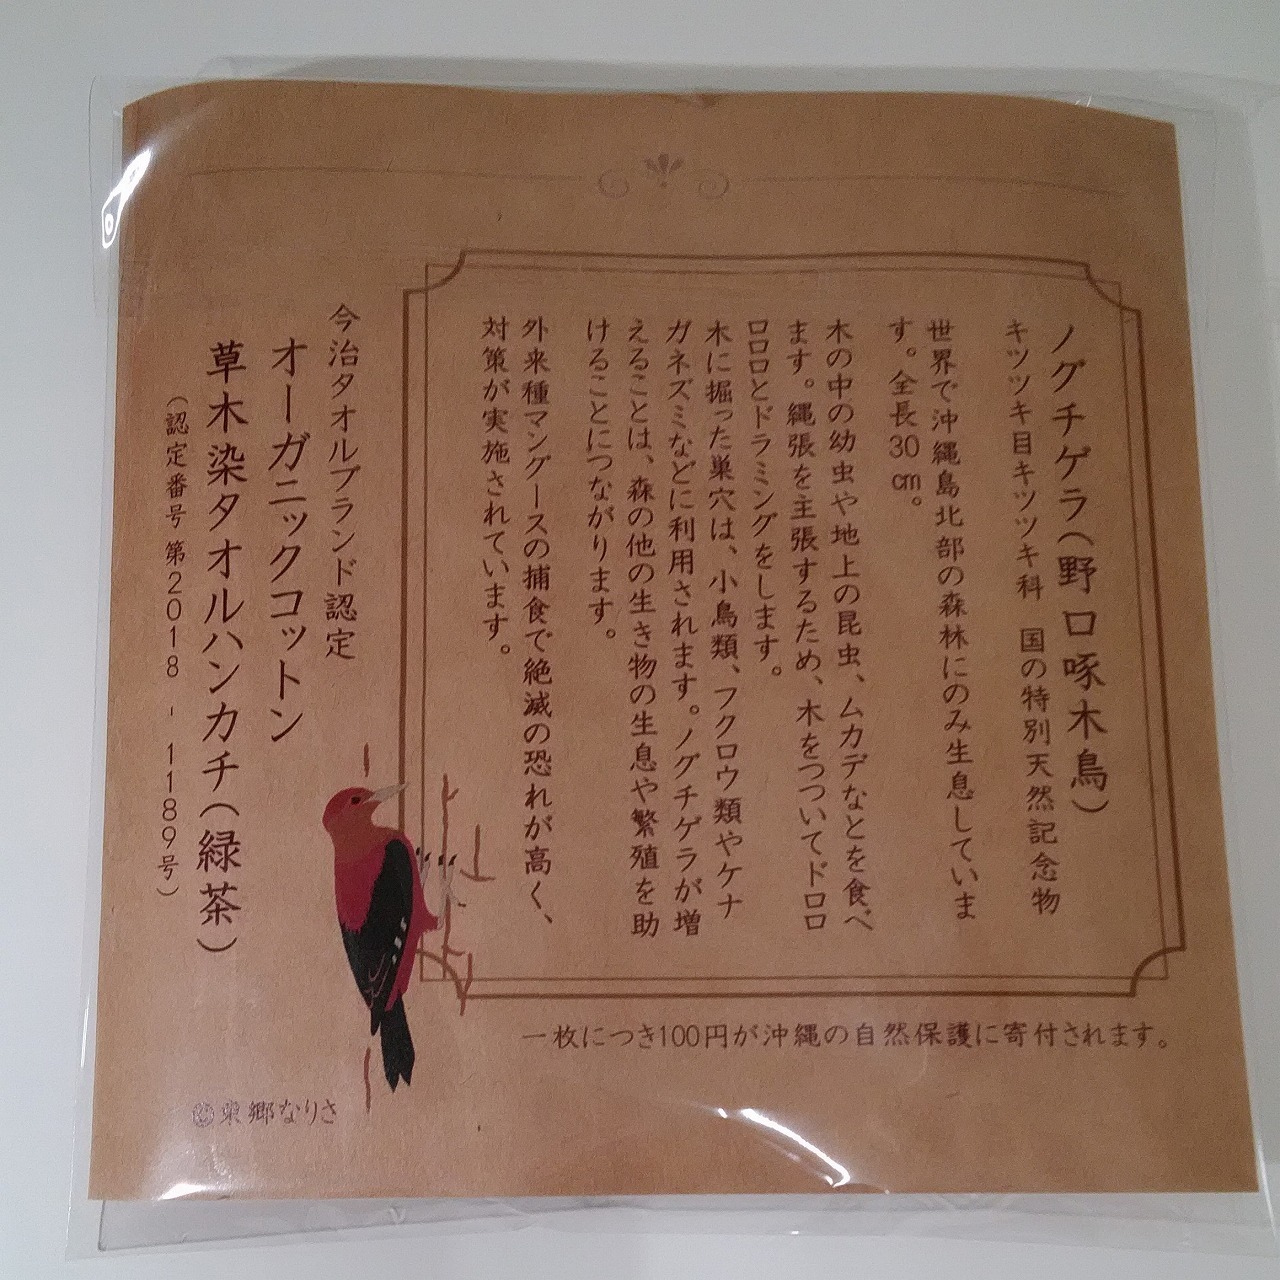 ノグチゲラ(野口啄木鳥)
キツツキ目キツツキ科 国の特別天然記念物
世界で沖縄島北部の森林にのみ生息していま
す。全長30㎝。
木の中の幼虫や地上の昆虫、ムカデなとを食べ
ます。縄張を主張するため、木をつついてドロロ
ロロロとドラミングをします。
木に掘った巣穴は、小鳥類、フクロウ類やケナ
ガネズミなどに利用されます。ノグチゲラが増
えることは、森の他の生き物の生息や繁殖を助
けることにつながります。
外来種マングースの捕食で絶滅の恐れが高く、
対策が実施されています。
今治タオルブランド認定
オーガニックコットン
草木染タオルハンカチ(緑茶)
(認定番号 第2018 - 1189号)
一枚につき100円が沖縄の自然保護に寄付されます。
東郷なりさ